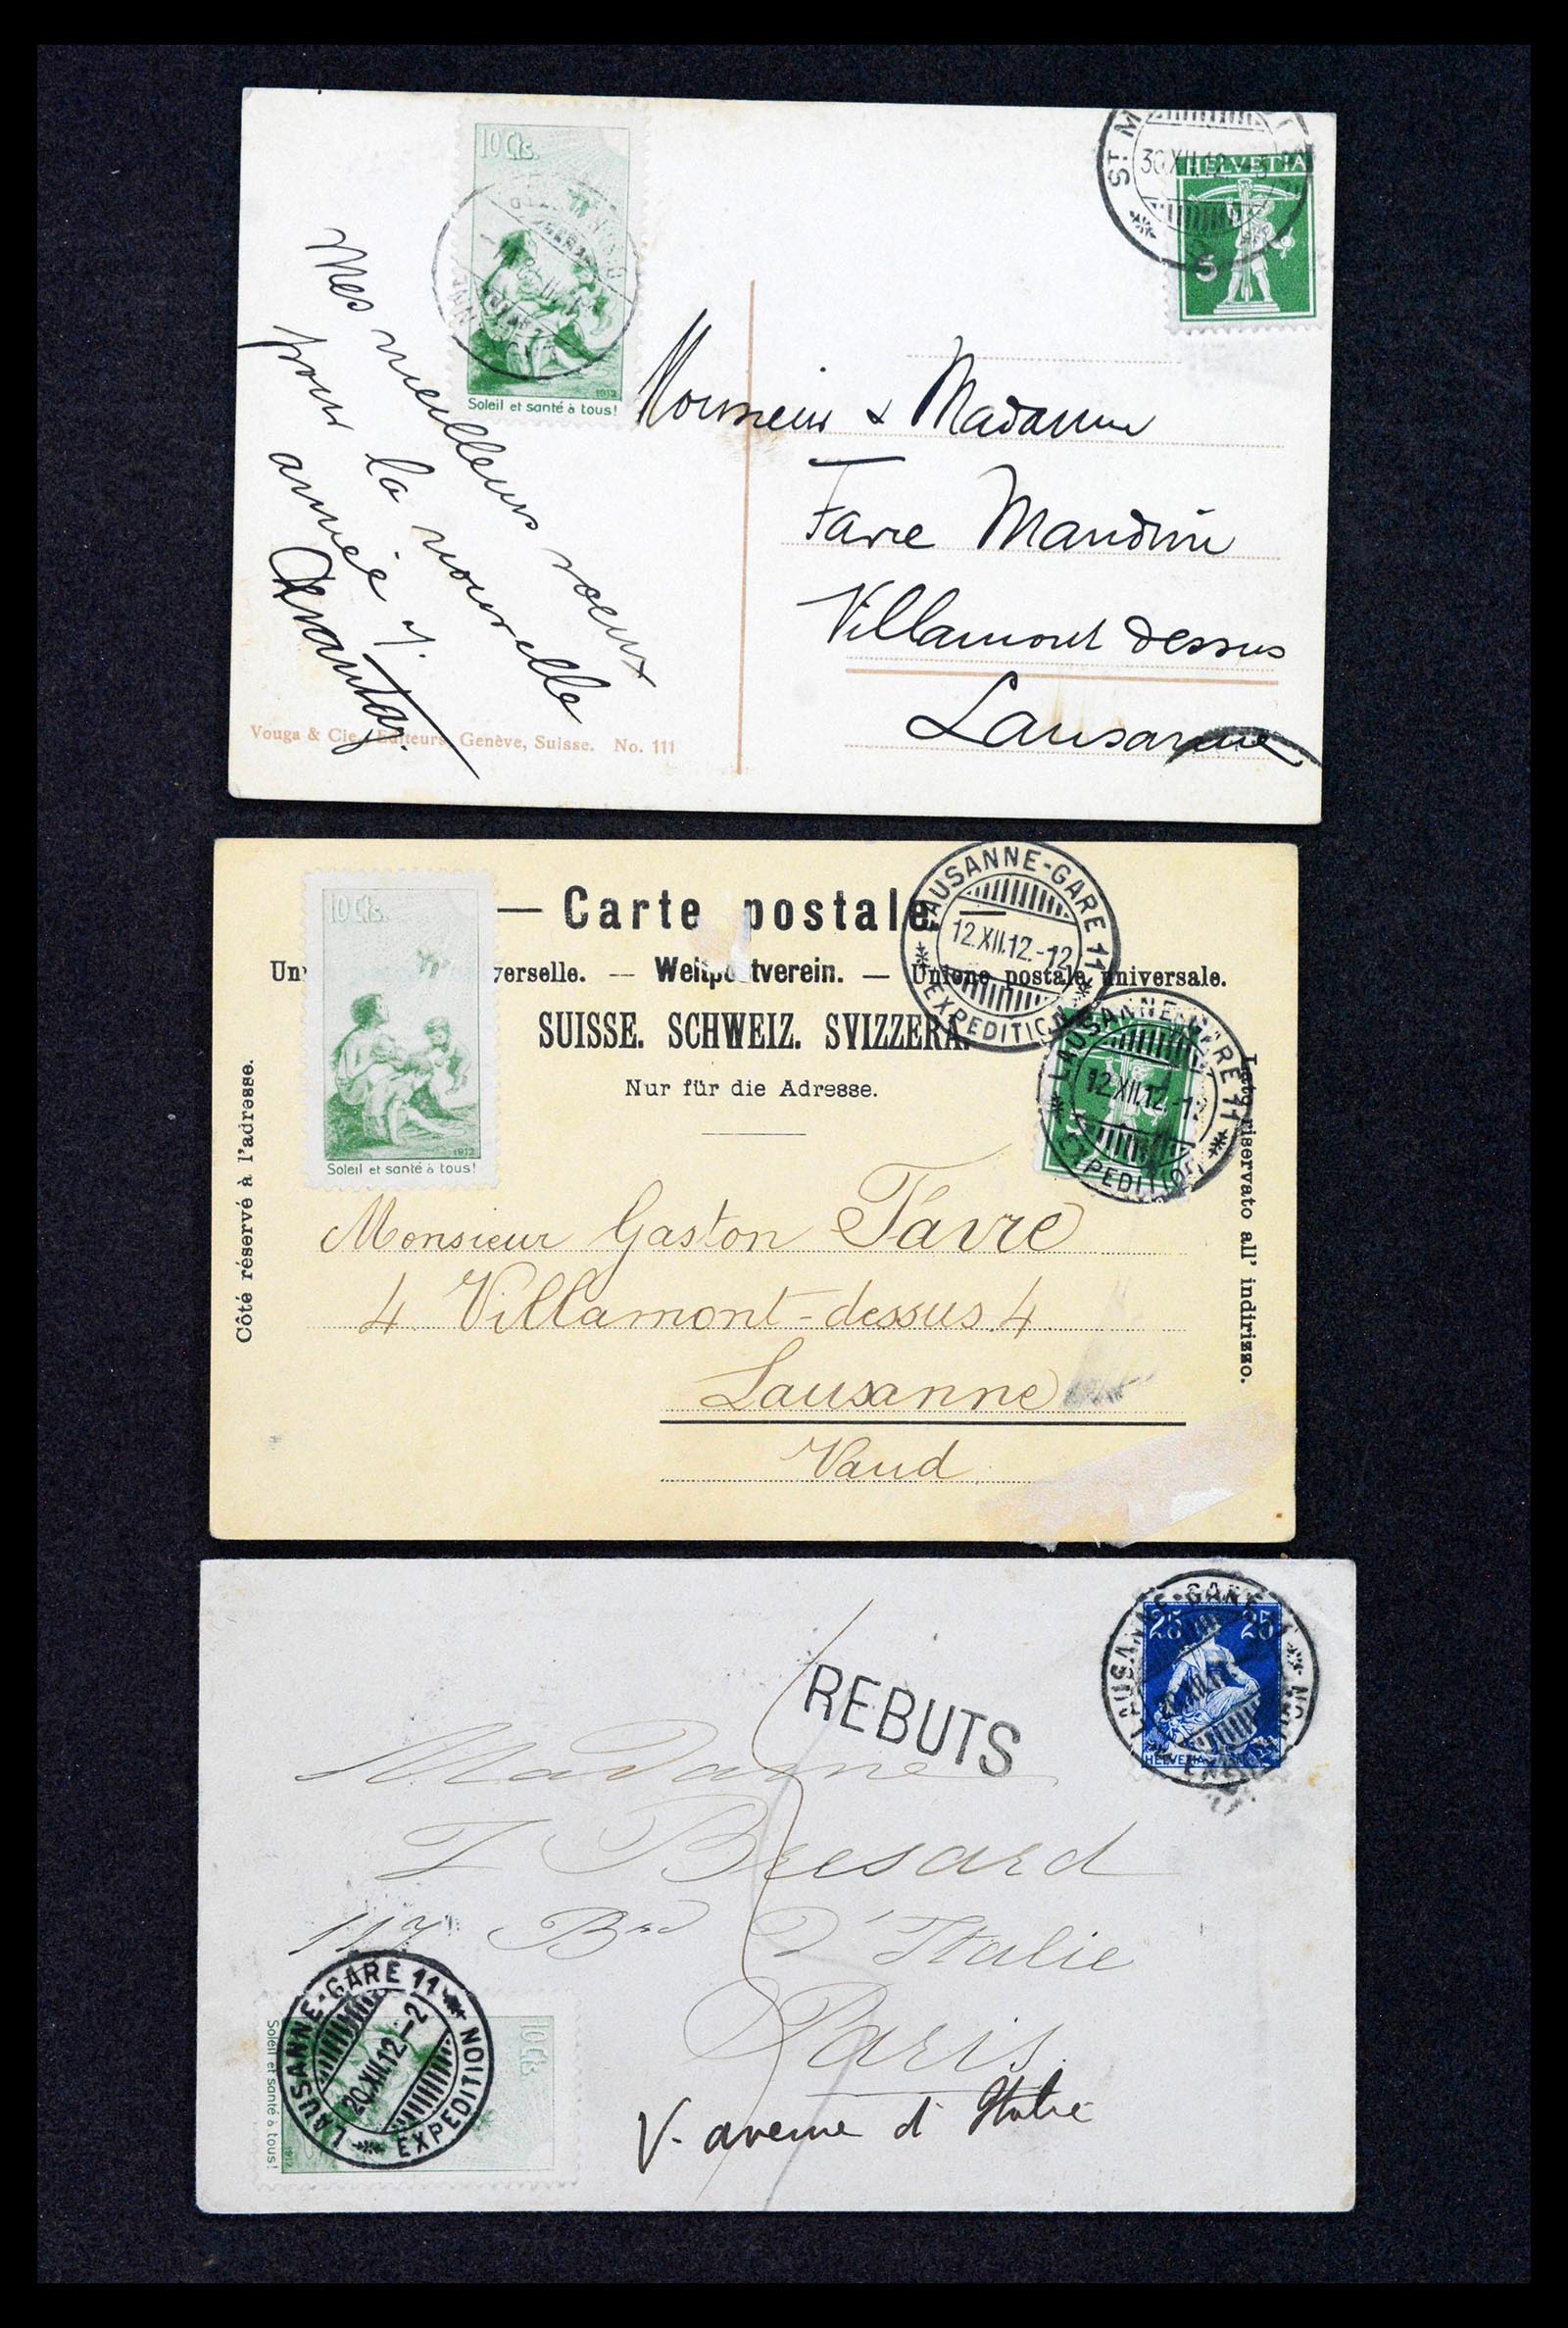 10 Cts.
1912
Soleil et santé à tous!
ST. M
30.XII.12.-3
HELVETIA
5
Mes meilleurs voeux
pour la nouvelle
année
Monsieur & Madame
Favre
Villamont dessus
Lausanne
Vouga & Cie., Editeurs, Genève, Suisse. No. 111
10 Cts.
1912
Soleil et santé à tous!
— Carte postale. —
Un verselle. — Weltpostverein. — Unione postale universale.
SUISSE. SCHWEIZ. SVIZZERA.
Nur für die Adresse.
Côté réservé à l'adresse.
Lato riservato all' indirizzo.
LAUSANNE-GARE 11
12.XII.12.-12
EXPEDITION
LAUSANNE-GARE 11
12.XII.12.-12
EXPEDITION
5
Monsieur Gaston Favre
4. Villamont-dessus. 4
Lausanne
Vaud
REBUTS
LAUSANNE-GARE
25 25
HELVETIA
Madame
117 Bard d'Italie
Paris
V. avenue d'Italie
LAUSANNE-GARE 11
20.XII.12.-2
EXPEDITION
10 Cts.
1912
Soleil et santé à tous!